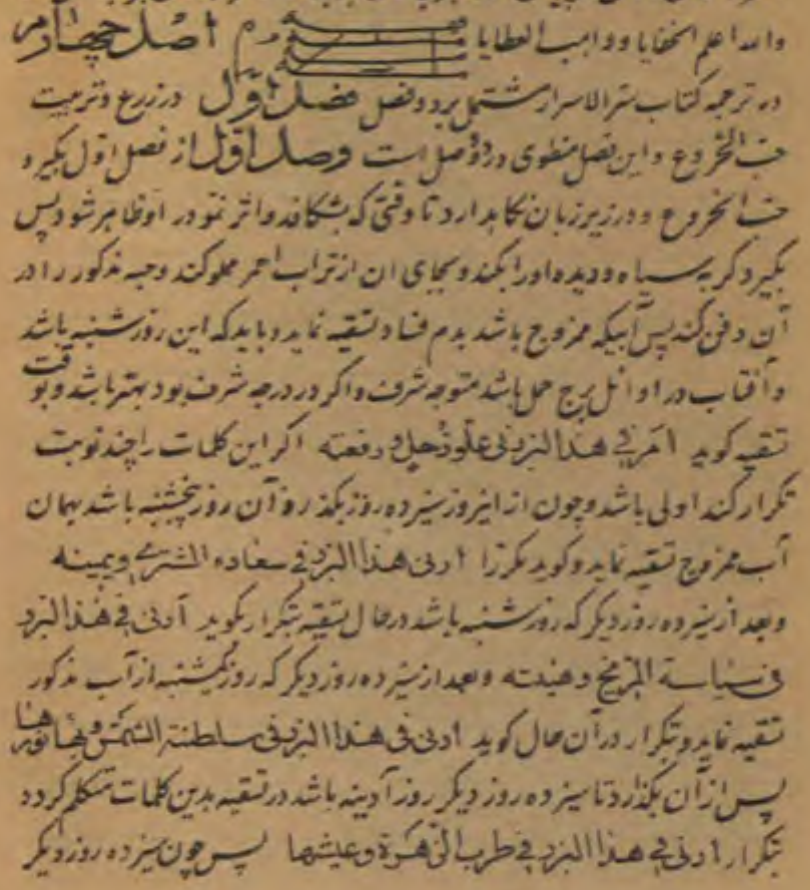 والله اعلم الخفایا و واهب العطایا م م اصل چهارم
در ترجمه کتاب سر الاسرار مشتمل بر دو فصل فصل اول در زرع و تربیت
حب الخروع و این فصل منطوی در دو وصل است وصل اول از فصل اول بگیرد
حب الخروع و در زیر زبان نکاهدارد تا وقتی که بشکافد و اثر نمو در او ظاهر شود پس
بگیرد گربه سیاه و دیده او را بکند و بجای آن از تراب احمر مملو کند و حبه مذکور را در
آن دفن کند پس آبیکه ممزوج باشد بدم فصاد تسقیه نماید و باید که این روز شنبه باشد
و آفتاب در اوائل برج حمل باشد متوجه شرف و اکر در درجه شرف بود بهتر باشد و بوقت
تسقیه کوید فی هذا البزر فی علو زحل و رفعته اکر این کلمات را چند نوبت
تکرار کند اولی باشد و چون از این روز سیزده روز بکذرد و آن روز پنجشنبه باشد بهمان
آب ممزوج تسقیه نماید و کوید مکررا ادنی هذا البزر فی سعاده المشتری و یمینه
و بعد از سیزده روز دیکر که روز سه‌شنبه باشد در حال تسقیه بتکرار بکوید ادنی فی هذا البزر
فی سیاسة المریخ و هیبته و بعد از سیزده روز دیکر که روز یکشنبه از آب مذکور
تسقیه نماید و بتکرار در آن حال کوید ادنی فی هذا البزر فی سلطنة الشمس
پس از آن بکذارد تا سیزده روز دیکر روز آدینه باشد در تسقیه بدین کلمات متکلم کردد
بتکرار ادنی فی هذا البزر فی طرب الزهرة و عیشها پس چون سیزده روز دیکر